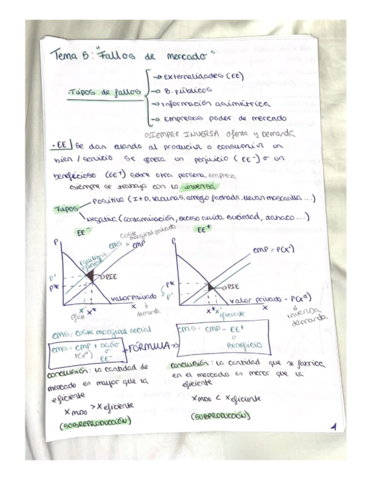 Tema 5: "Fallos de mercado"
Tipos de fallos
→ Externalidades (EE)
→ B. públicos
→ Información asimétrica
→ Empresas poder de mercado
SIEMPRE INVERSA oferta y demanda
· EE Se dan cuando al producir o consumir un
bien / servicio se genera un perjuicio (EE-) o un
beneficioso (EE+) sobre otra persona, empresa
siempre se trabaja con la inversa
Tipos
Positiva (I+D, vacunas, arreglo fachada, llevar mascarilla ...)
Negativa (contaminación, exceso ruido, suciedad, tabaco ...)
EE-
coste marginal privado
CMG = CMP
P
P*
PIE
valor privado
demanda
x x*
EE+
P
P*
CMP = P(x°)
PIE
valor privado = P(xd)
inversa
demanda
x x*
eficiente
CMG: coste marginal social
CMG = CMP + EE-
P(x°)
← FÓRMULA →
CMG = CMP - EE+
Beneficio
CONCLUSIÓN: la cantidad de
mercado es mayor que la
eficiente
x mdo > x eficiente
(SOBREPRODUCCIÓN)
CONCLUSIÓN: la cantidad que se fabrica
en el mercado es menor que la
eficiente
x mdo < x eficiente
(SUBPRODUCCIÓN)
1